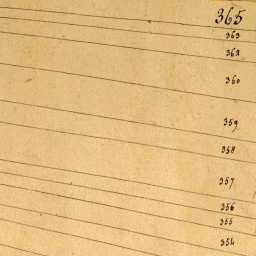 365
363
362
360
359
358
357
356
355
354